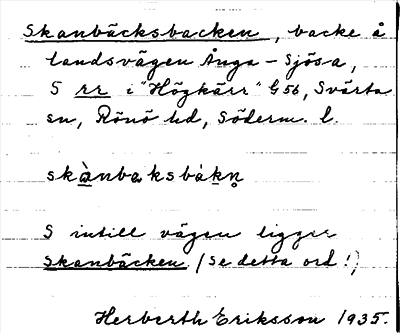 Skanbäcksbacken, backe å
landsvägen Ånga - Sjösa,
S rr i "Högkärr" G 56, Svärta
sn, Rönö hd, Söderm. l.
skànbaksbákn̥
S intill vägen ligger
Skanbäcken. (Se detta ord!)
Herberth Eriksson 1935.